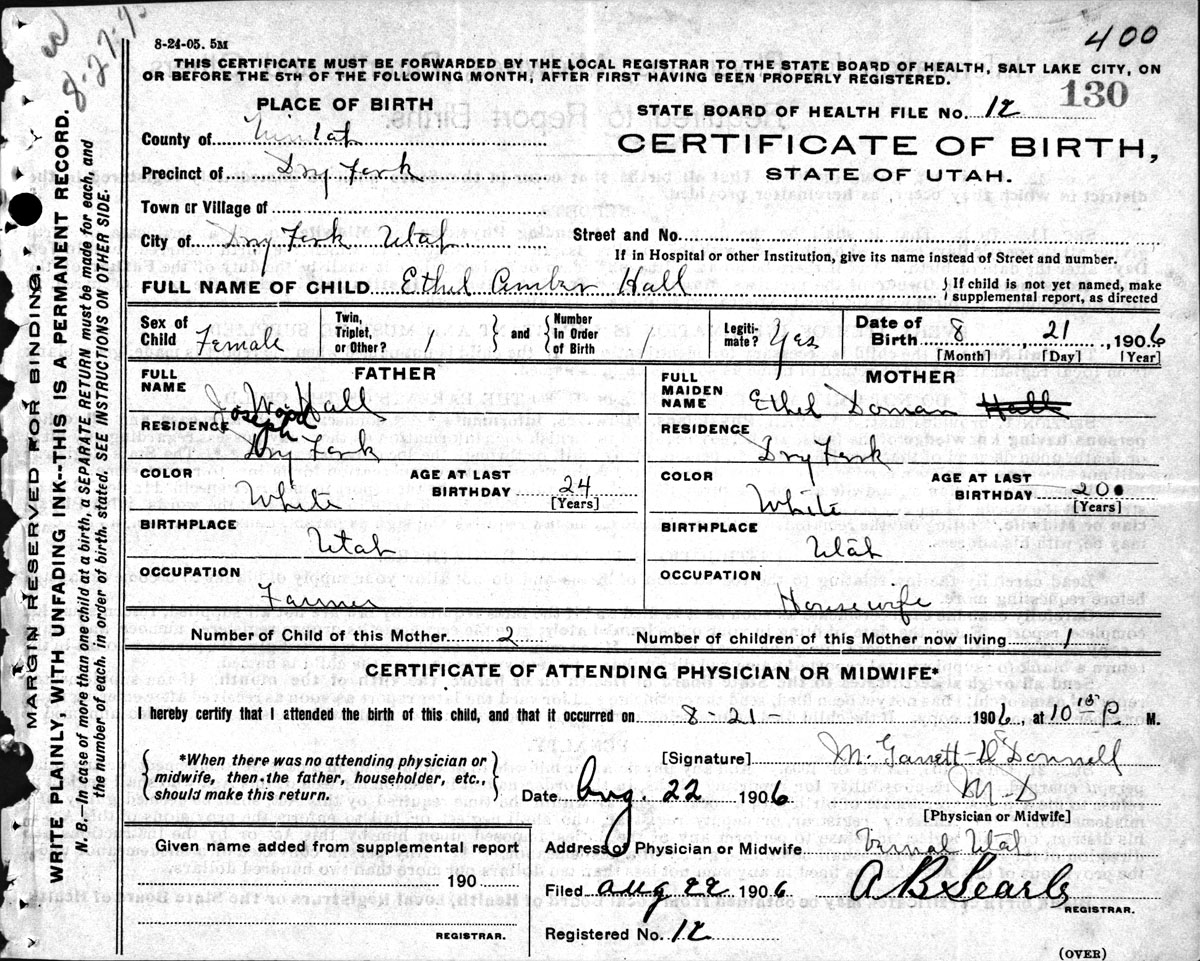 8-27-9
400
8-24-05. 5M
THIS CERTIFICATE MUST BE FORWARDED BY THE LOCAL REGISTRAR TO THE STATE BOARD OF HEALTH, SALT LAKE CITY, ON
OR BEFORE THE 5TH OF THE FOLLOWING MONTH, AFTER FIRST HAVING BEEN PROPERLY REGISTERED.
130
PLACE OF BIRTH
STATE BOARD OF HEALTH FILE No. 12
County of Uintah
CERTIFICATE OF BIRTH,
Precinct of Dry Fork
STATE OF UTAH.
Town or Village of
City of Dry Fork Utah Street and No.
If in Hospital or other Institution, give its name instead of Street and number.
FULL NAME OF CHILD Ethel Amber Hall { If child is not yet named, make
supplemental report, as directed
Sex of Child Female Twin, Triplet, or Other? / } and { Number in Order of Birth / Legiti-mate? Yes Date of Birth 8 21 , 1906
[Month] [Day] [Year]
FATHER
FULL NAME Jos Wood Hall
seph
RESIDENCE Dry Fork
COLOR White AGE AT LAST BIRTHDAY 24
[Years]
BIRTHPLACE Utah
OCCUPATION Farmer
MOTHER
FULL MAIDEN NAME Ethel Doman Hall
RESIDENCE Dry Fork
COLOR White AGE AT LAST BIRTHDAY 20
[Years]
BIRTHPLACE Utah
OCCUPATION Housewife
Number of Child of this Mother 2 Number of children of this Mother now living 1
CERTIFICATE OF ATTENDING PHYSICIAN OR MIDWIFE*
I hereby certify that I attended the birth of this child, and that it occurred on 8-21- 1906, at 10 15 P M.
{ *When there was no attending physician or
midwife, then the father, householder, etc.,
should make this return. }
[Signature] M. Garrett O'Donnell
Date Aug. 22 1906 M D
[Physician or Midwife]
Given name added from supplemental report
190
REGISTRAR.
Address of Physician or Midwife Vernal Utah
Filed Aug 22 1906 A B Searle
REGISTRAR.
Registered No. 12
(OVER)
MARGIN RESERVED FOR BINDING.
WRITE PLAINLY, WITH UNFADING INK--THIS IS A PERMANENT RECORD.
N. B.—In case of more than one child at a birth, a SEPARATE RETURN must be made for each and
the number of each, in order of birth, stated. SEE INSTRUCTIONS ON OTHER SIDE.